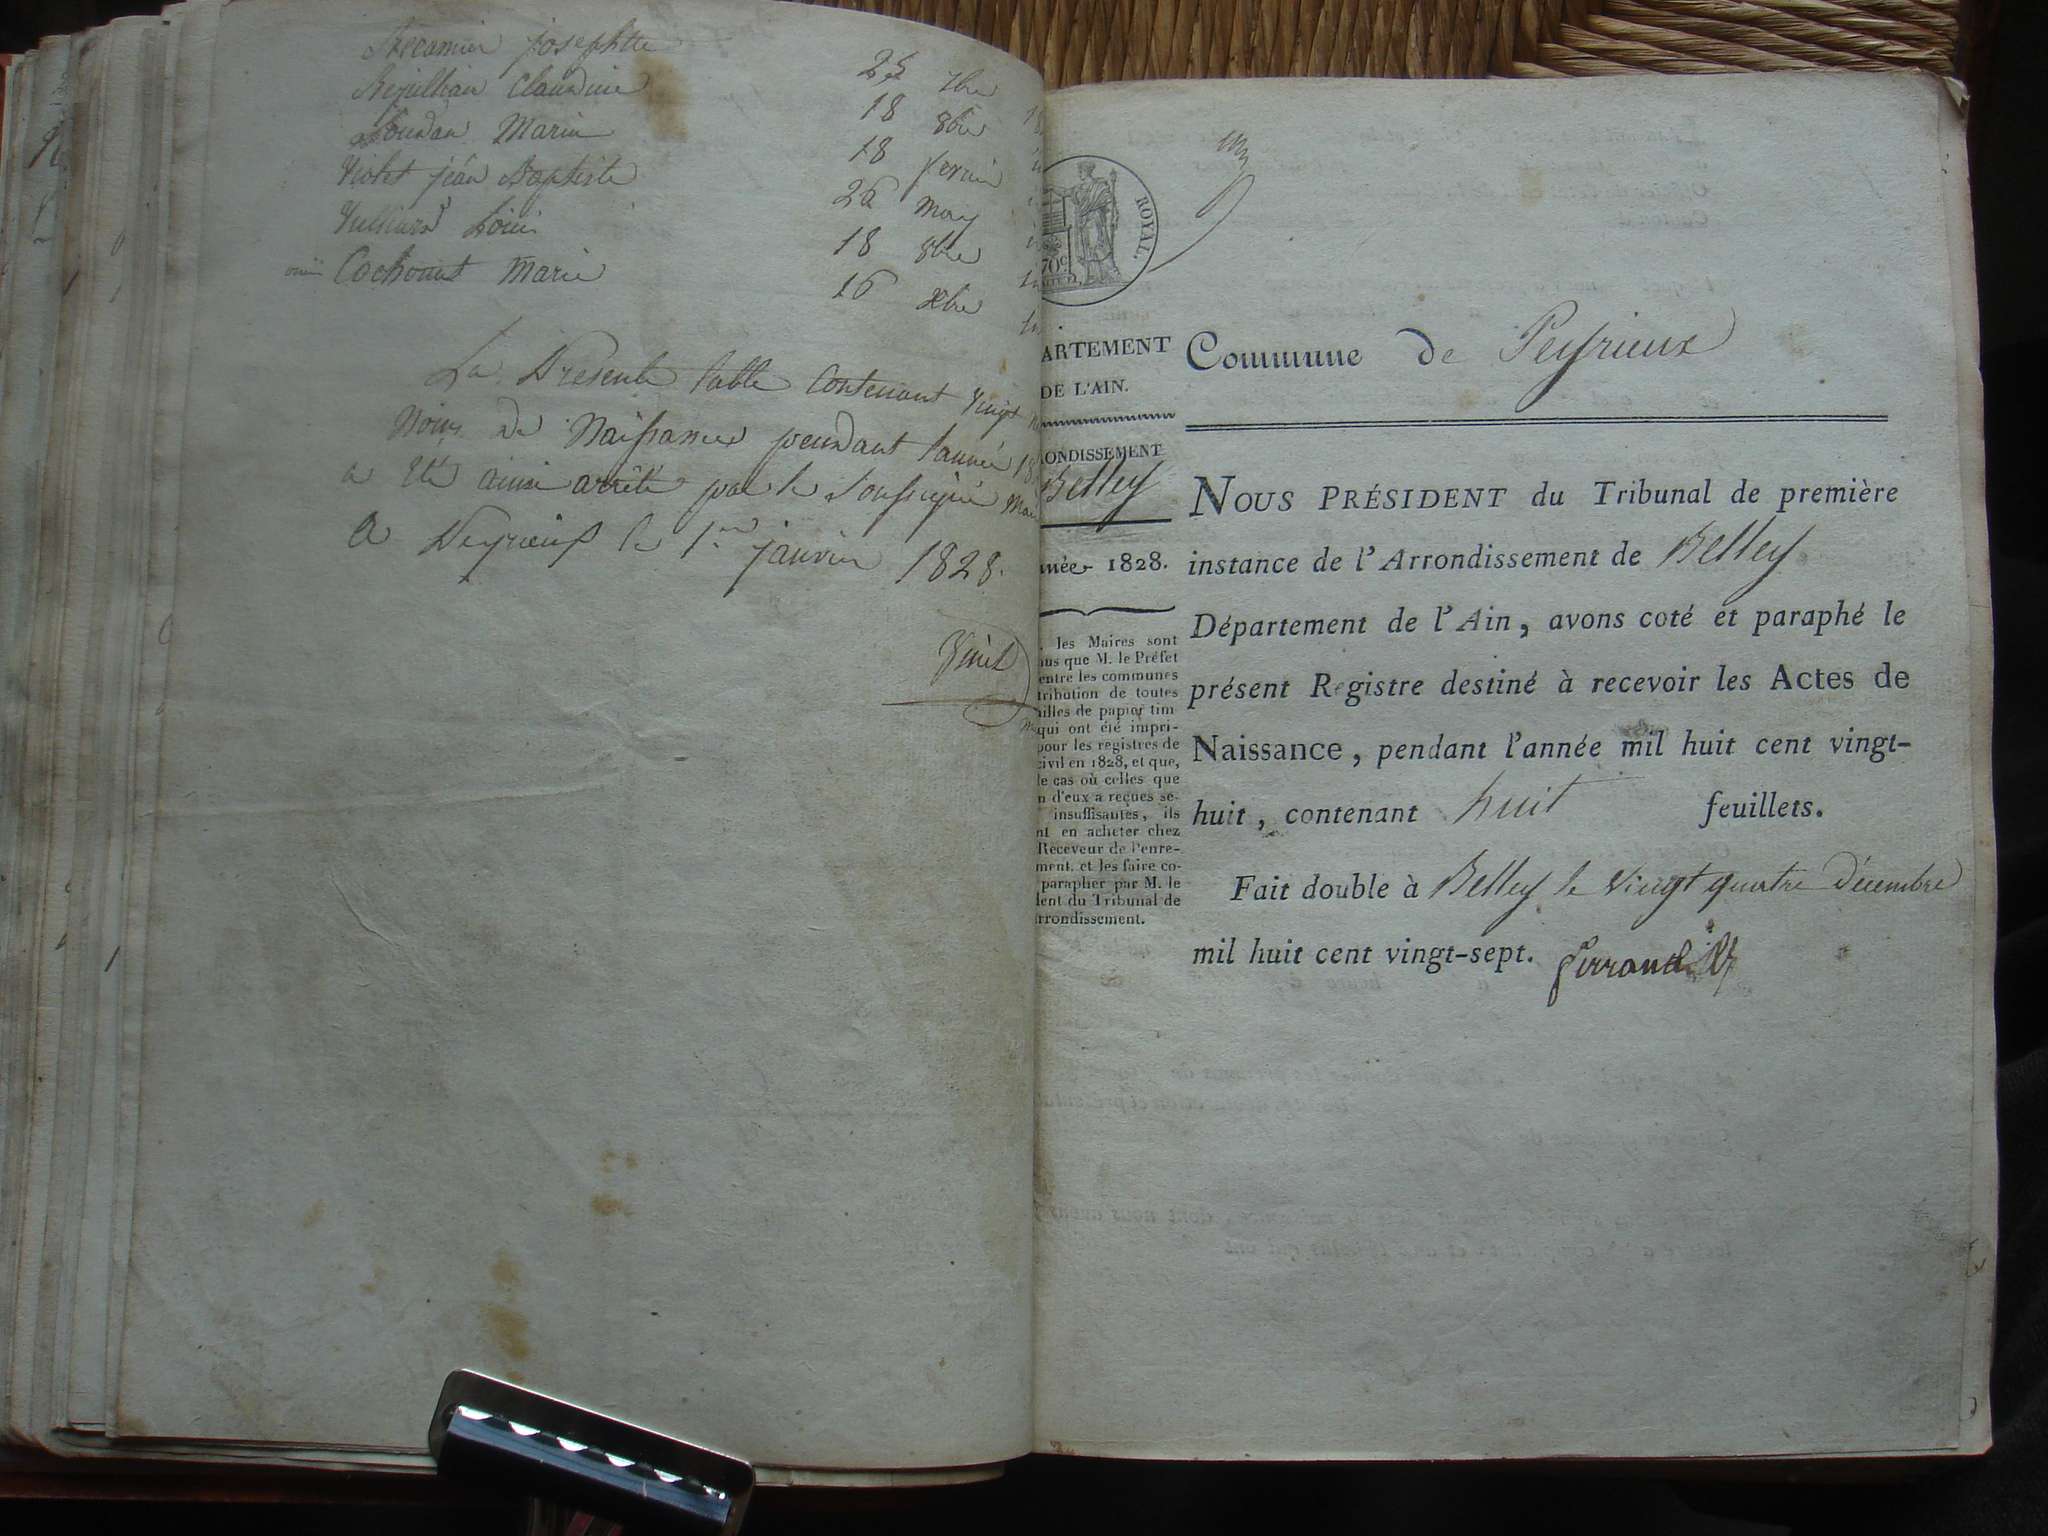 Recamier josephte 25 7bre
Claudine 18 8bre
Marie 18 fevrier
Violet jéan Baptiste 26 may
Louis 18 8bre
omis Cochonat Marie 16 xbre
La Présente table Contenant vingt
Noms de Naissances pendant l'année 18
a été ainsi arrêté par le Soussigné Mai
A Peyrieux le 1er janvier 1828.
ROYAL.
70c
ARTEMENT
DE L'AIN.
ONDISSEMENT
Belley
nnée 1828.
. les Maires sont
nus que M. le Préfet
entre les communes
tribution de toutes
uilles de papier tim
qui ont été impri-
pour les registres de
civil en 1828, et que,
le cas où celles que
n d'eux a reçues se-
insuffisantes, ils
nt en acheter chez
Receveur de l'enre-
ment, et les faire co-
parapher par M. le
dent du Tribunal de
rrondissement.
Commune de Peyrieux
NOUS PRÉSIDENT du Tribunal de première
instance de l'Arrondissement de Belley
Département de l'Ain, avons coté et paraphé le
présent Registre destiné à recevoir les Actes de
Naissance, pendant l'année mil huit cent vingt-
huit, contenant huit feuillets.
Fait double à Belley le vingt quatre décembre
mil huit cent vingt-sept. Perrand